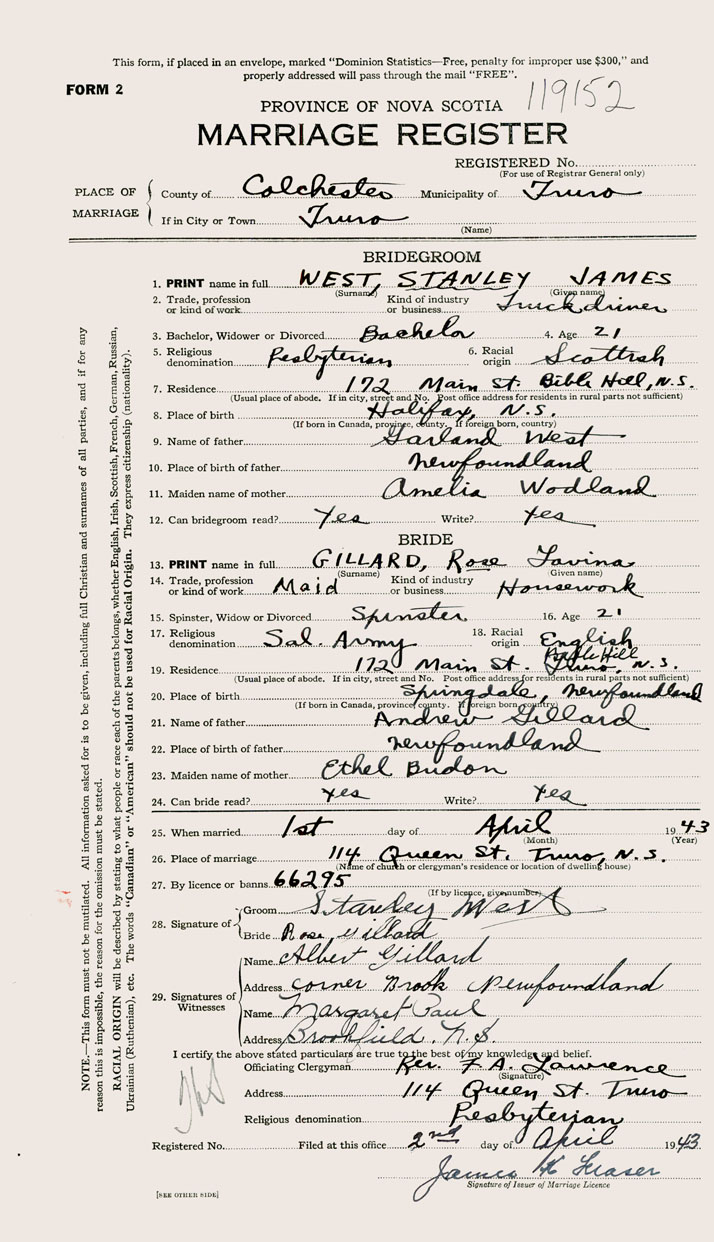 This form, if placed in an envelope, marked "Dominion Statistics—Free, penalty for improper use $300," and
properly addressed will pass through the mail "FREE".
FORM 2
119152
PROVINCE OF NOVA SCOTIA
MARRIAGE REGISTER
REGISTERED No.
(For use of Registrar General only)
PLACE OF MARRIAGE
County of Colchester Municipality of Truro
If in City or Town Truro
(Name)
BRIDEGROOM
1. PRINT name in full WEST, STANLEY JAMES
(Surname) (Given name)
2. Trade, profession or kind of work Kind of industry or business Truck driver
3. Bachelor, Widower or Divorced Bachelor 4. Age 21
5. Religious denomination Presbyterian 6. Racial origin Scottish
7. Residence 172 Main St. Bible Hill, N.S.
(Usual place of abode. If in city, street and No. Post office address for residents in rural parts not sufficient)
8. Place of birth Halifax, N.S.
(If born in Canada, province, county. If foreign born, country)
9. Name of father Garland West
10. Place of birth of father Newfoundland
11. Maiden name of mother Amelia Wodland
12. Can bridegroom read? Yes Write? Yes
BRIDE
13. PRINT name in full GILLARD, Rose Tavina
(Surname) (Given name)
14. Trade, profession or kind of work Maid Kind of industry or business Housework
15. Spinster, Widow or Divorced Spinster 16. Age 21
17. Religious denomination Sal. Army 18. Racial origin English
19. Residence 172 Main St. Bible Hill Truro, N.S.
(Usual place of abode. If in city, street and No. Post office address for residents in rural parts not sufficient)
20. Place of birth Springdale, Newfoundland
(If born in Canada, province, county. If foreign born, country)
21. Name of father Andrew Gillard
22. Place of birth of father Newfoundland
23. Maiden name of mother Ethel Budon
24. Can bride read? Yes Write? Yes
25. When married 1st day of April 1943
(Month) (Year)
26. Place of marriage 114 Queen St. Truro, N.S.
(Name of church or clergyman's residence or location of dwelling house)
27. By licence or banns 66295
(If by licence, give number)
28. Signature of
Groom Stanley West
Bride Rose Gillard
29. Signatures of Witnesses
Name Albert Gillard
Address Corner Brook Newfoundland
Name Margaret Paul
Address Brookfield. N.S.
I certify the above stated particulars are true to the best of my knowledge and belief.
Officiating Clergyman Rev. F. A. Lawrence
(Signature)
Address 114 Queen St. Truro
Religious denomination Presbyterian
Registered No. Filed at this office 2nd day of April 1943
James K Fraser
Signature of Issuer of Marriage Licence
[SEE OTHER SIDE]
NOTE.—This form must not be mutilated. All information asked for is to be given, including full Christian and surnames of all parties, and if for any
reason this is impossible, the reason for the omission must be stated.
RACIAL ORIGIN will be described by stating to what people or race each of the parents belongs, whether English, Irish, Scottish, French, German, Russian,
Ukrainian (Ruthenian), etc. The words "Canadian" or "American" should not be used for Racial Origin. They express citizenship (nationality).